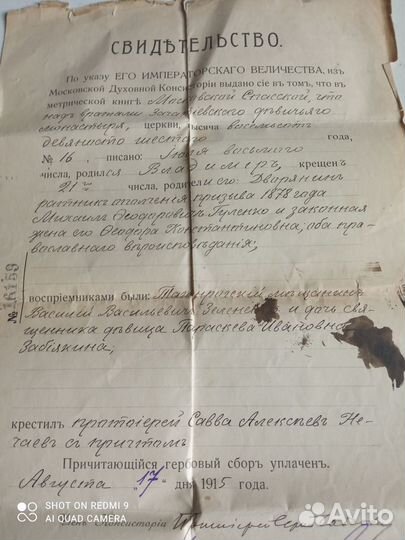 СВИДѢТЕЛЬСТВО.
По указу ЕГО ИМПЕРАТОРСКАГО ВЕЛИЧЕСТВА, изъ
Московской Духовной Консисторіи выдано сіе въ томъ, что въ
метрической книгѣ Московской Спасской, что
надъ вратами Зачатіевскаго дѣвичьяго
монастыря, церкви, тысяча восемьсотъ
девяносто шестого года,
№ 16, писано: Іюля восьмого
числа, родился Владимиръ, крещенъ
21го числа, родители его: Дворянинъ
ратникъ ополченія призыва 1878 года
Михаилъ Ѳеодоровичъ Гуленко и законная
жена его Ѳеодора Константиновна; оба пра-
вославнаго вѣроисповѣданія;
№ 16159
воспріемниками были: Таганрогскій мѣщанинъ
Василій Васильевичъ и дочь свя-
щенника дѣвица Параскева Ивановна
Забякина;
крестилъ протоіерей Савва Алексѣевъ Не-
чаевъ съ причтомъ
Причитающійся гербовый сборъ уплаченъ.
Августа "17" дня 1915 года.
Консисторіи Протоіерей
SHOT ON REDMI 9
AI QUAD CAMERA
Avito